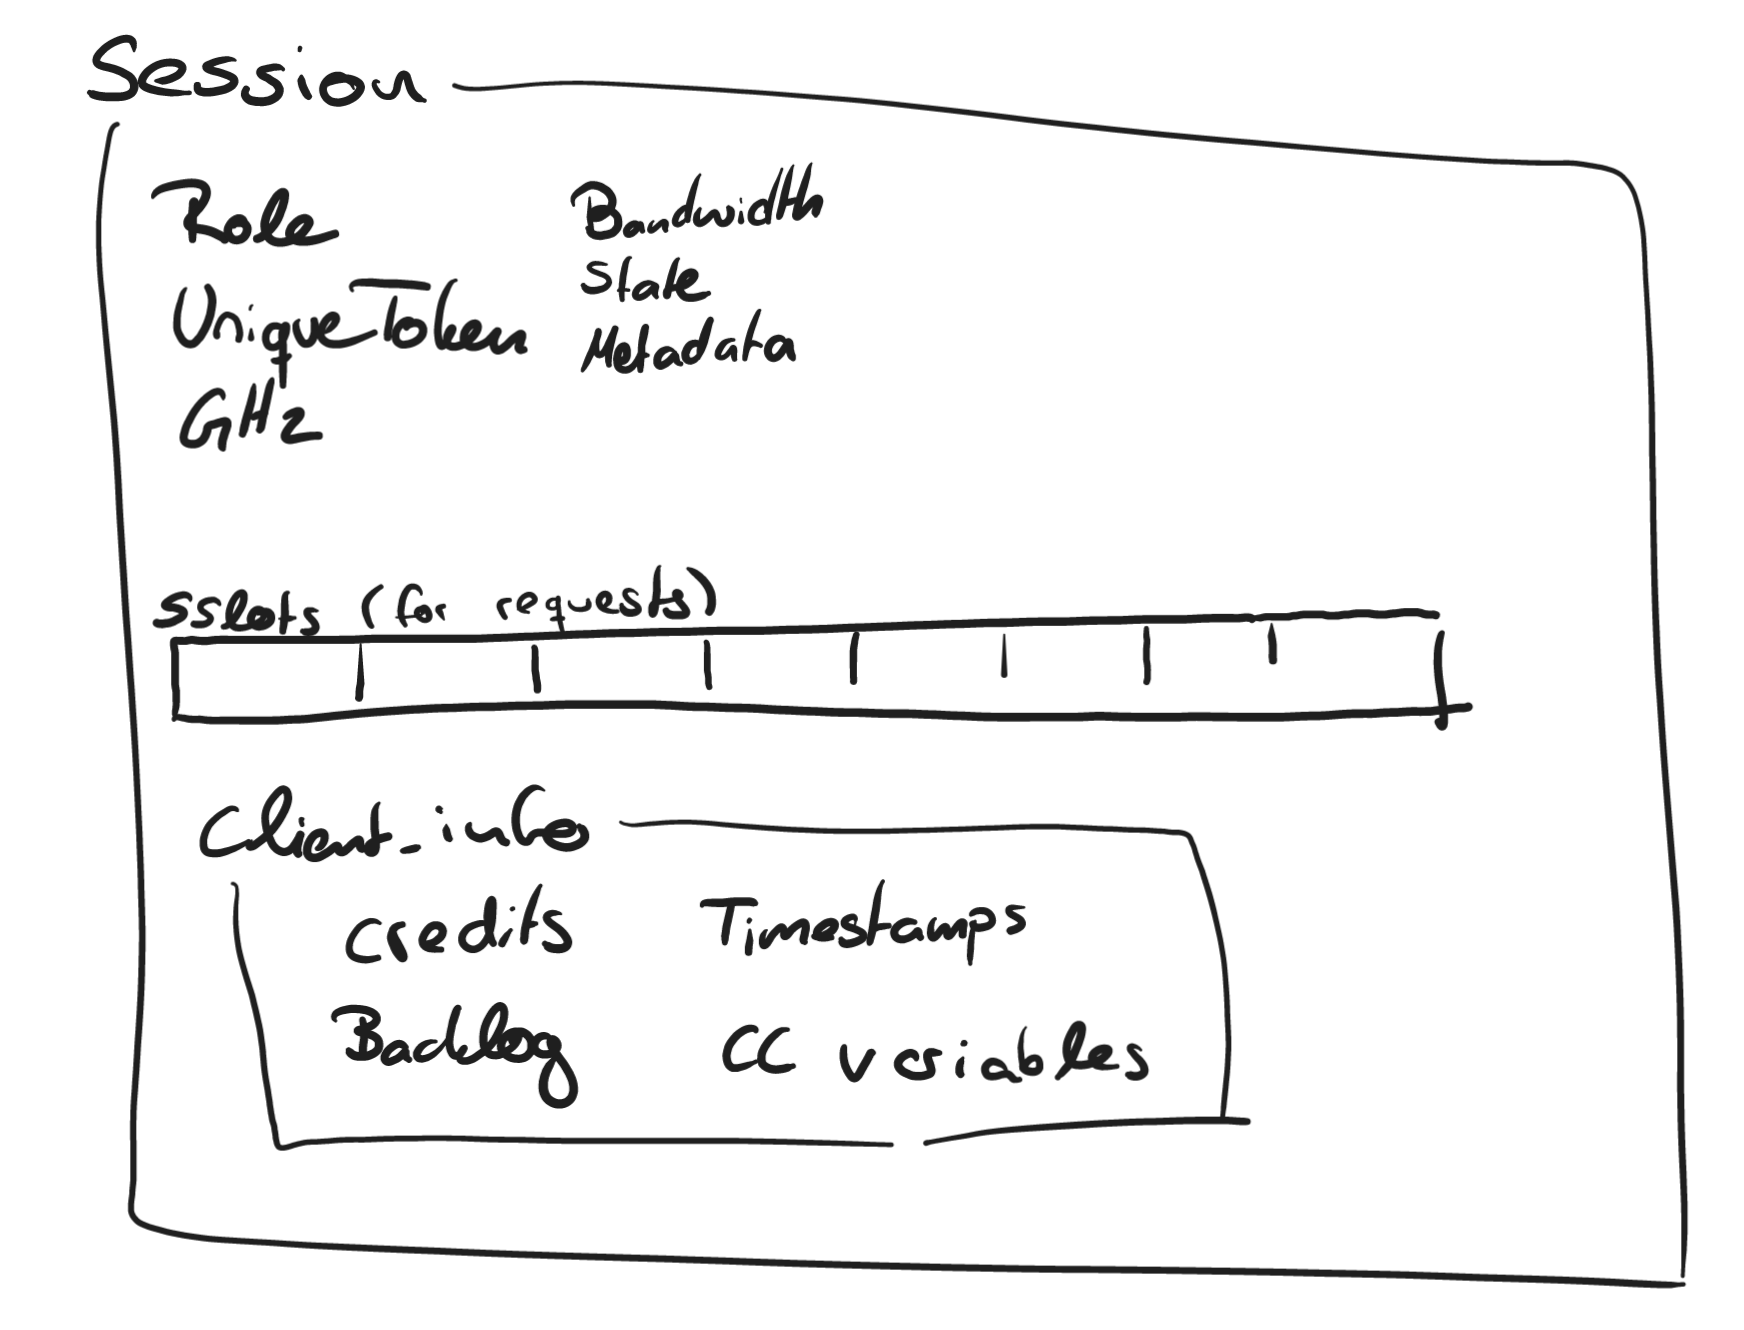 Session
Role
UniqueToken
GHz
Bandwidth
State
Metadata
sslots (for requests)
Client_info
credits
Timestamps
Backlog
CC variables